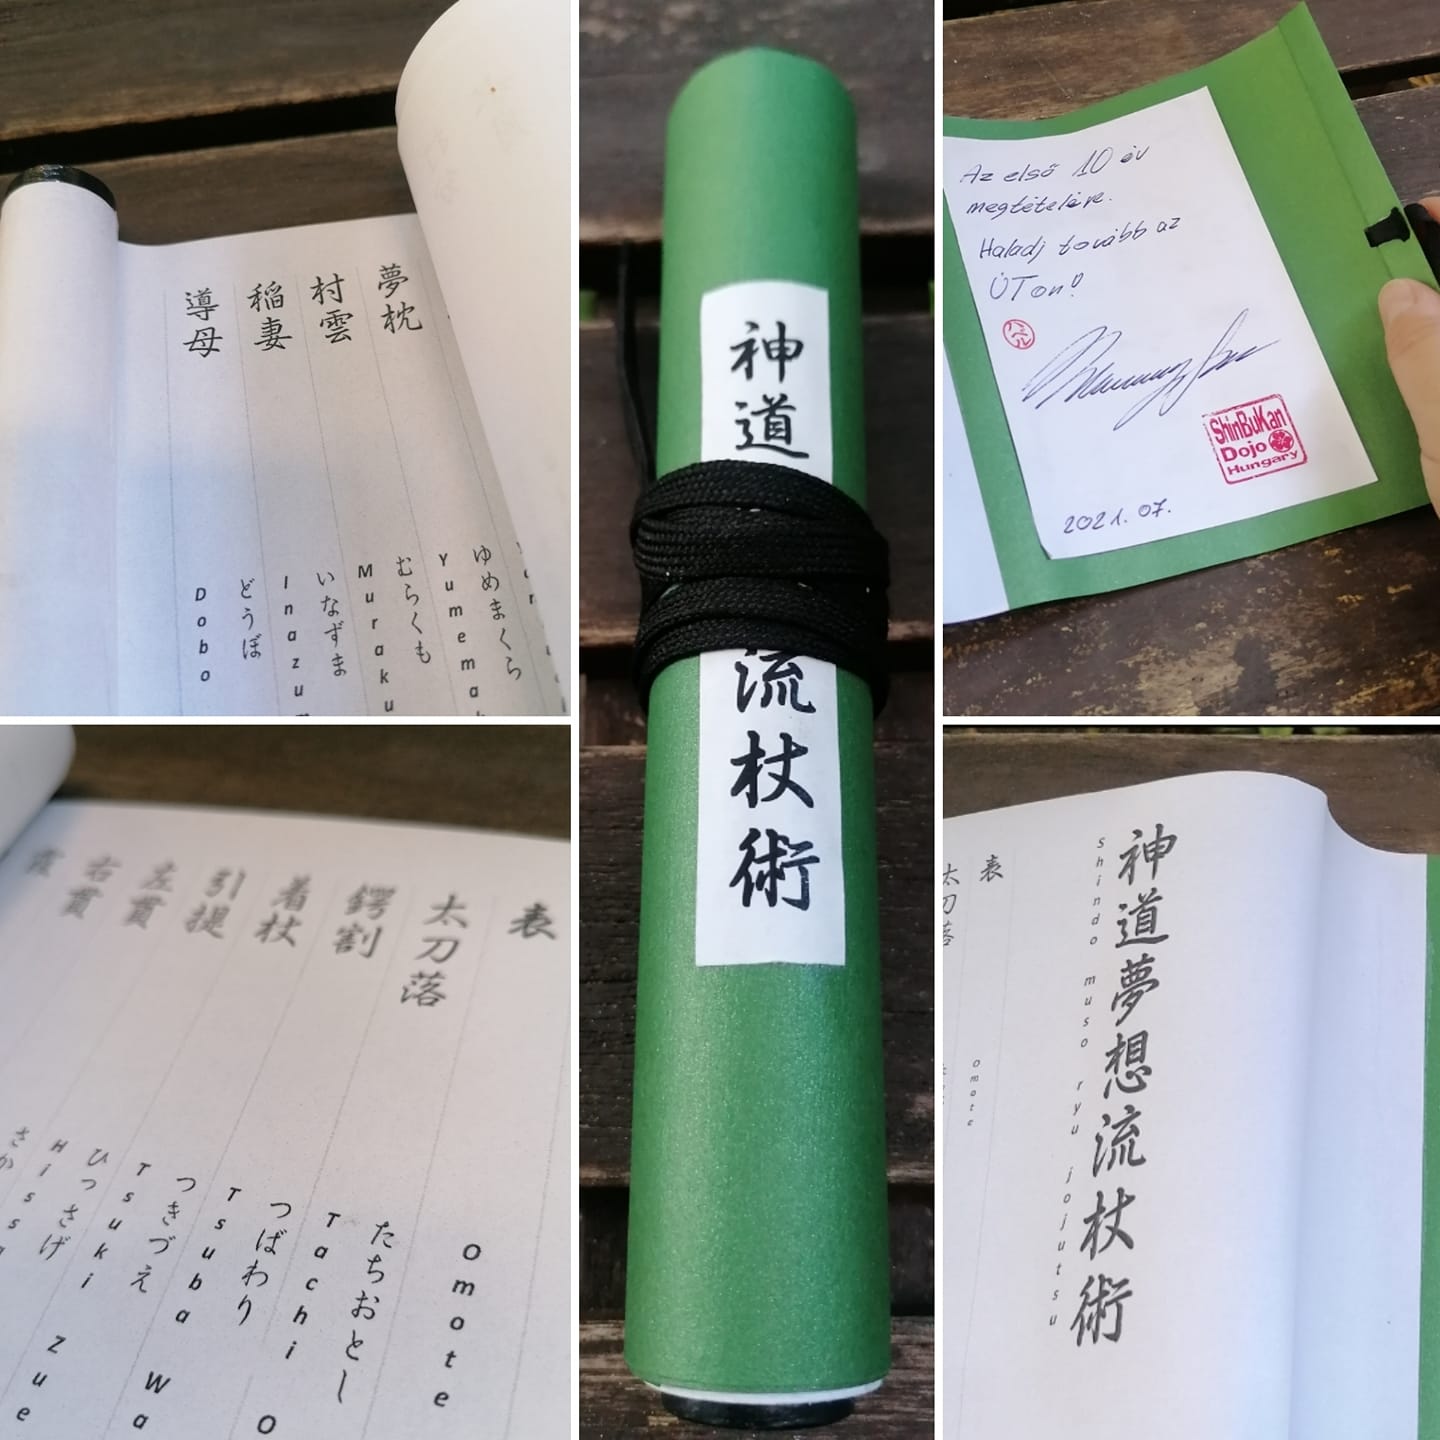 夢枕
ゆめまくら
村雲
むらくも
稲妻
いなずま
導母
どうぼ
Dobo
神道
流杖術
Az első 10 év
megtételére.
Haladj tovább az
ÚTon!
ハミル
ShinBuKan
Dojo
Hungary
2021. 07.
表
Omote
太刀落
たちおとし
Tachi O
鍔割
つばわり
Tsuba Wa
着杖
つきづえ
Tsuki Zue
引提
ひっさげ
左貫
右貫
霞
神道夢想流杖術
shindo muso ryu jojutsu
表
omote
太刀落